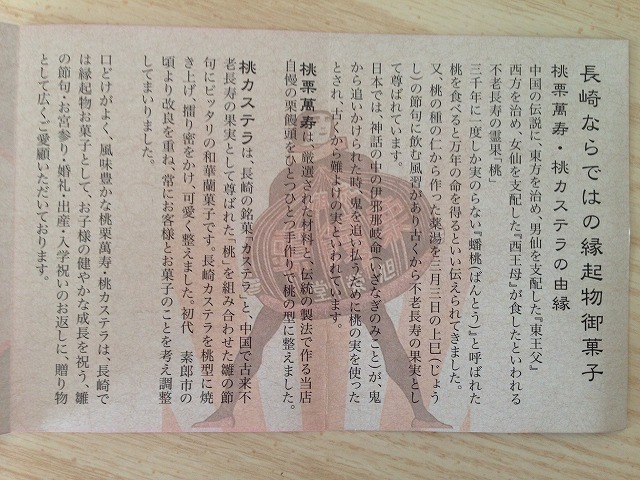 長崎ならではの縁起物御菓子
桃栗萬寿・桃カステラの由縁
中国の伝説に、東方を治め、男仙を支配した『東王父』
西方を治め、女仙を支配した『西王母』が食したといわれる
不老長寿の霊果「桃」
三千年に一度しか実のらない『蟠桃(ばんとう)』と呼ばれた
桃を食べると万年の命を得るといい伝えられてきました。
又、桃の種の仁から作った薬湯を三月三日の上巳(じょう
し)の節句に飲む風習があり古くから不老長寿の果実とし
て尊ばれています。
日本では、神話の中の伊邪那岐命(いざなぎのみこと)が、鬼
から追いかけられた時、鬼を追い払うために桃の実を使った
とされ、古くから難よけの実といわれています。
桃栗萬寿は、厳選された材料と、伝統の製法で作る当店
自慢の栗饅頭をひとつひとつ手作りで桃の型に整えました。
桃カステラは、長崎の銘菓「カステラ」と、中国で古来不
老長寿の果実として尊ばれた「桃」を組み合わせた雛の節
句にピッタリの和華蘭菓子です。長崎カステラを桃型に焼
き上げ、摺り密をかけ、可愛く整えました。初代 素郎市の
頃より改良を重ね、常にお客様とお菓子のことを考え調整
してまいりました。
口どけがよく、風味豊かな桃栗萬寿・桃カステラは、長崎で
は縁起物お菓子として、お子様の健やかな成長を祝う、雛
の節句・お宮参り・婚礼・出産・入学祝いのお返しに、贈り物
として広くご愛顧いただいております。